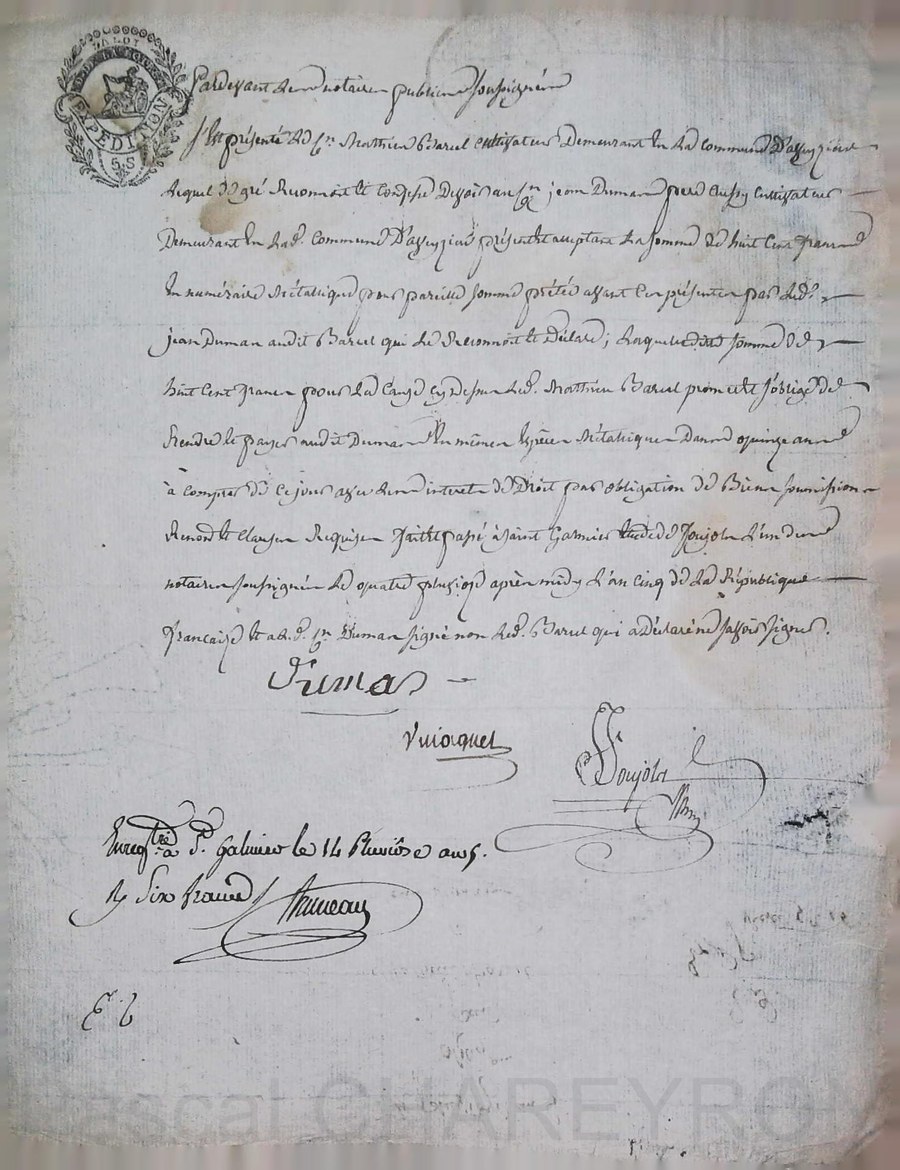 DE LOI
EXPEDITION
5.S
Pardevant les notaires publics soussignés
s'est présenté le Cn. Matthieu Barel cultivateur demeurant en la commune d'
lequel de gré reconnoit et confesse devoir au Cn. jean Dumas père aussy cultivateur
demeurant en lad. commune présent et acceptant la somme de huit cent francs
en numéraire métallique pour pareille somme prêtée avant ces présentes par led.
jean Dumas audit Barel qui le reconnoit et déclare; laquelle dite somme de
huit cent francs pour la cause cy dessus led. Matthieu Barel promet et s'oblige de
rendre et payer audit Dumas en mêmes espèces métalliques dans quinze ans
à compter de ce jour avec interets de droit par obligation de biens soumission
Renon et clauses requises fait et passé à saint Galmier etude de Poujols l'un des
notaires soussignés le quatre pluviose après midy l'an cinq de la République
française et a led. Cn. Dumas signé non led. Barel qui a déclaré ne savoir signer.
Dumas
Poujols
Enregtré à St. Galmier le 14 Pluviôse an 5.
R Six francs